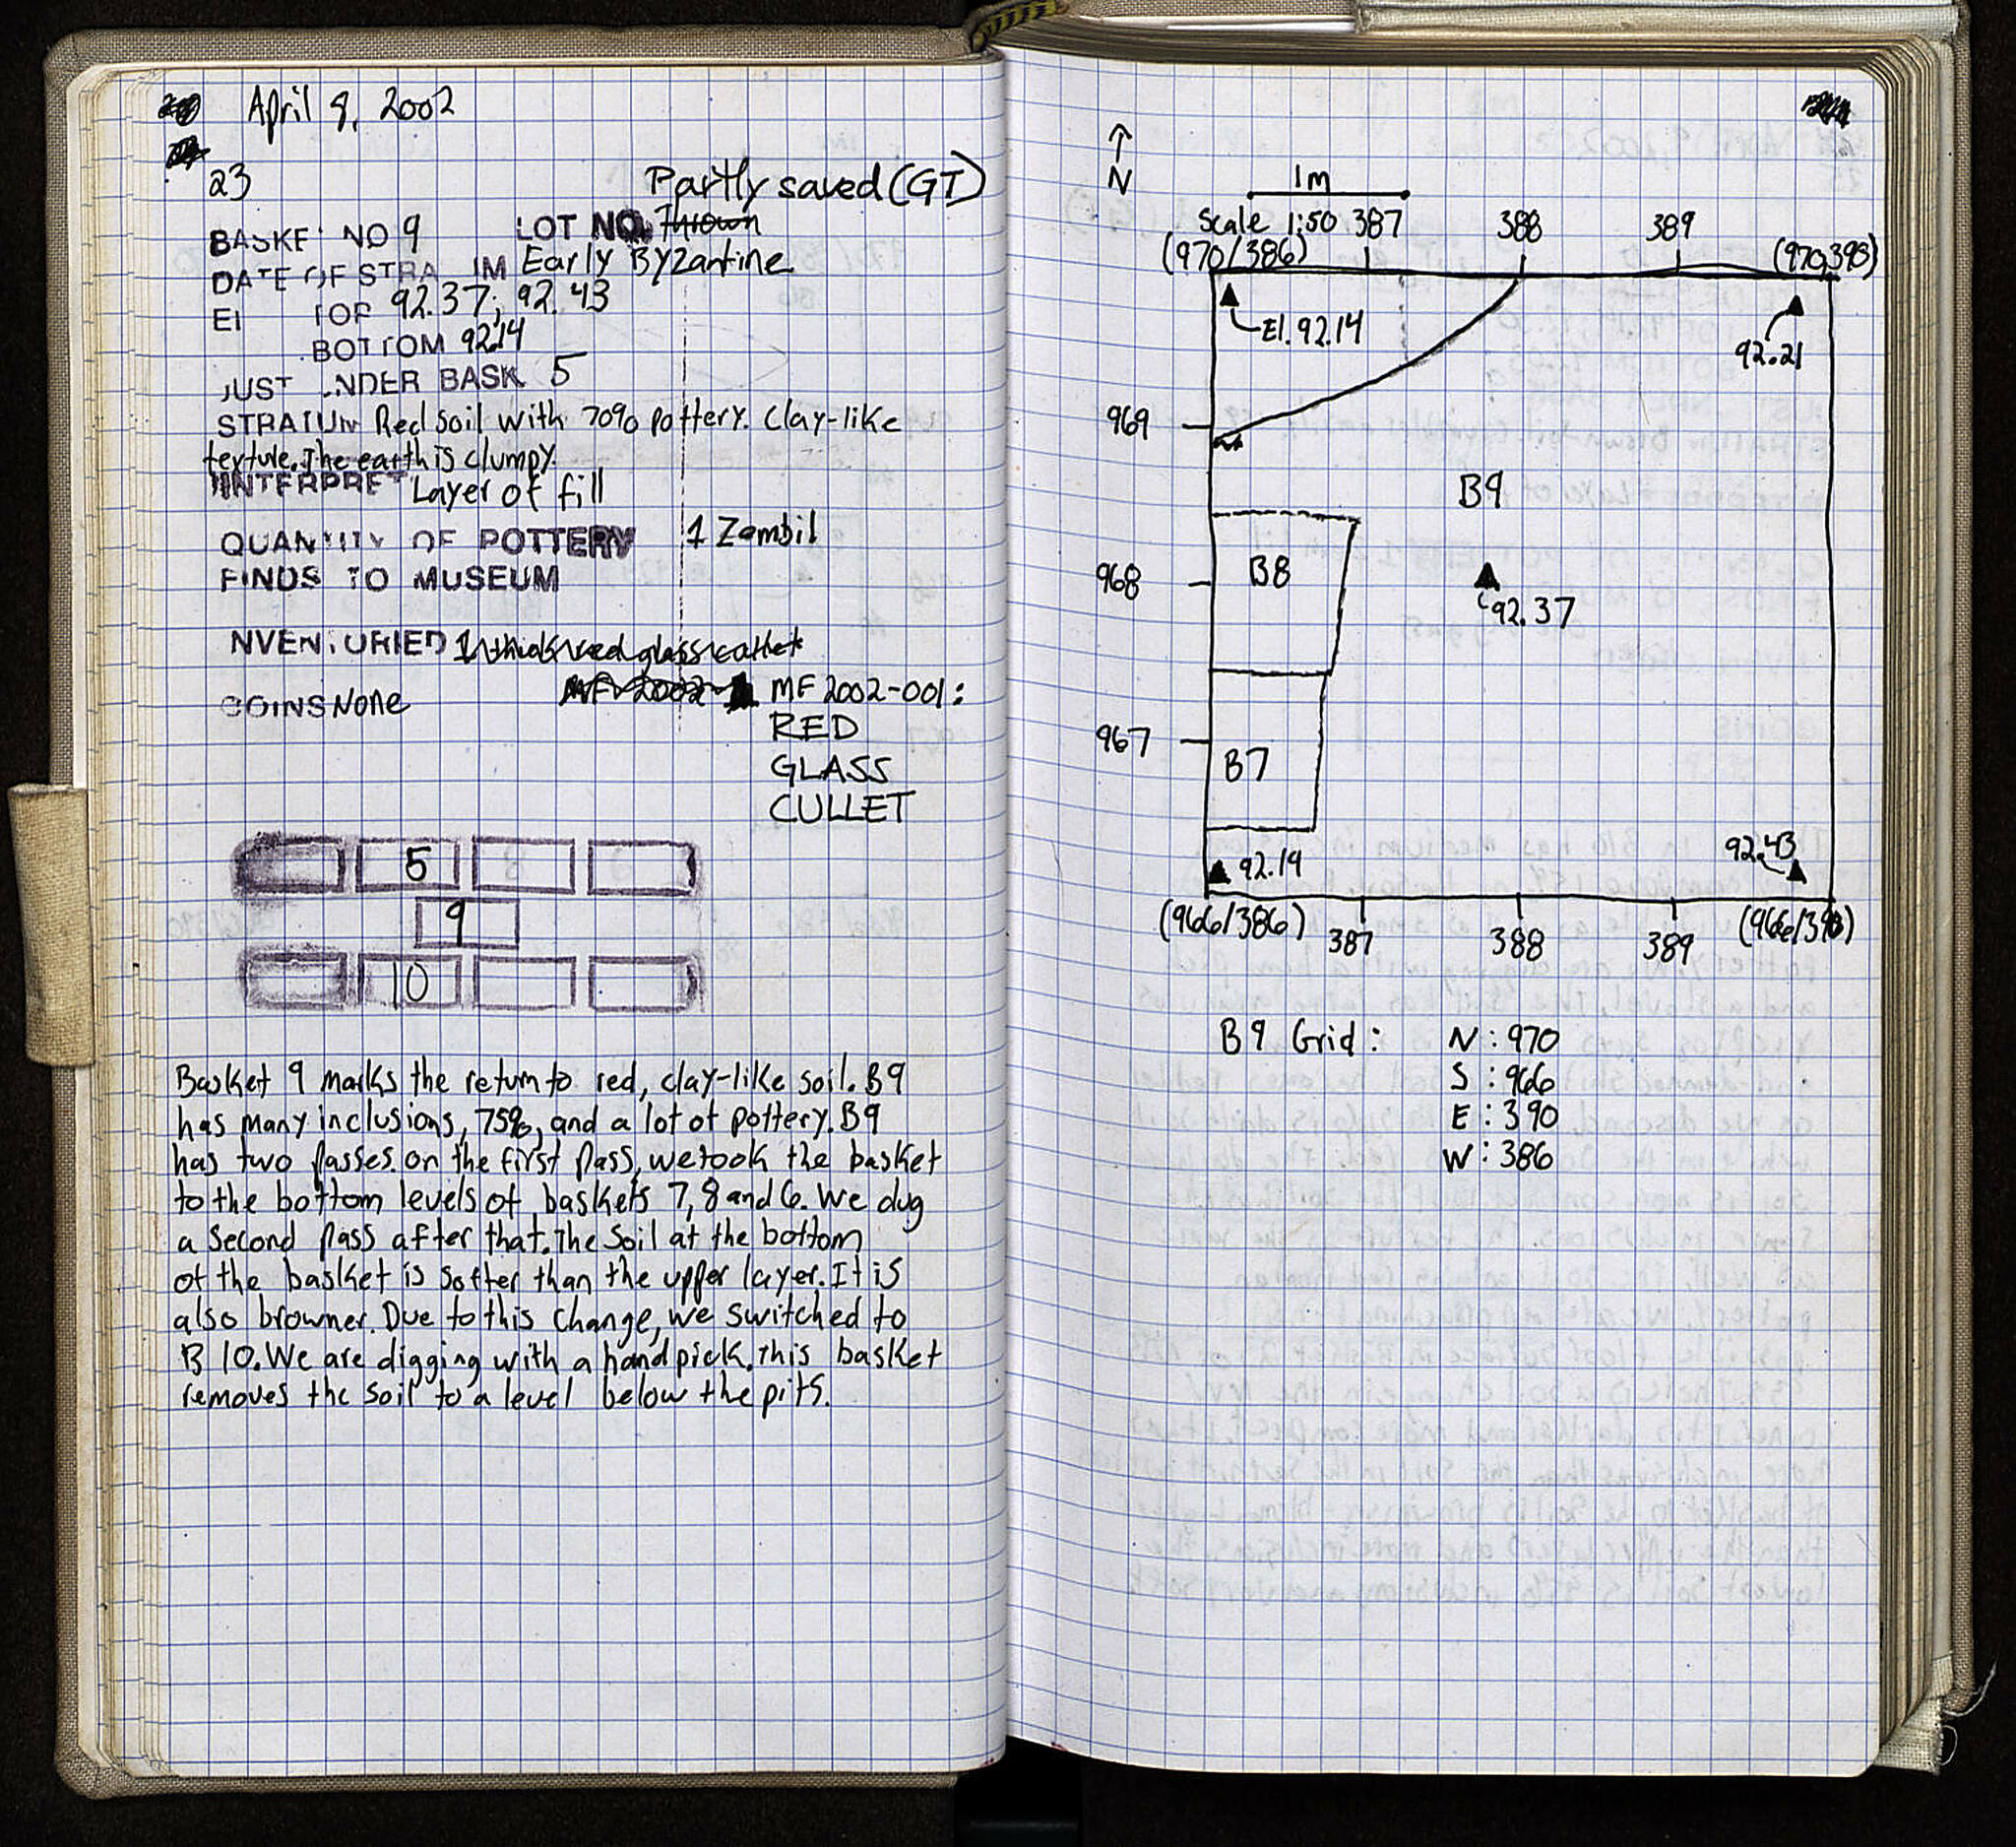 April 9, 2002
23
Partly saved (GT)
BASKE NO 9 LOT NO. Thrown
DATE OF STRA IM Early Byzantine
El TOP 92.37; 92.43
BOTTOM 92.14
JUST UNDER BASK 5
STRATUM Red soil with 70% pottery. Clay-like
texture. The earth is clumpy.
INTERPRET Layer of fill
QUANTITY OF POTTERY 1 Zembil
FINDS TO MUSEUM
NVENTORIED
COINS None MF 2002-001:
RED
GLASS
CULLET
5
9
10
Basket 9 marks the return to red, clay-like soil. B9
has many inclusions, 75%, and a lot of pottery. B9
has two passes. on the first pass, we took the basket
to the bottom levels of baskets 7, 8 and 6. We dug
a second pass after that. The soil at the bottom
of the basket is softer than the upper layer. It is
also browner. Due to this change, we switched to
B 10. We are digging with a hand pick. This basket
removes the soil to a level below the pits.
N
1m
Scale 1:50 387 388 389
(970/386) (970,390)
El. 92.14
92.21
969
B9
B8
968
92.37
967
B7
92.43
92.19
(966/386) 387 388 389 (966/390)
B9 Grid: N: 970
S: 966
E: 390
W: 386